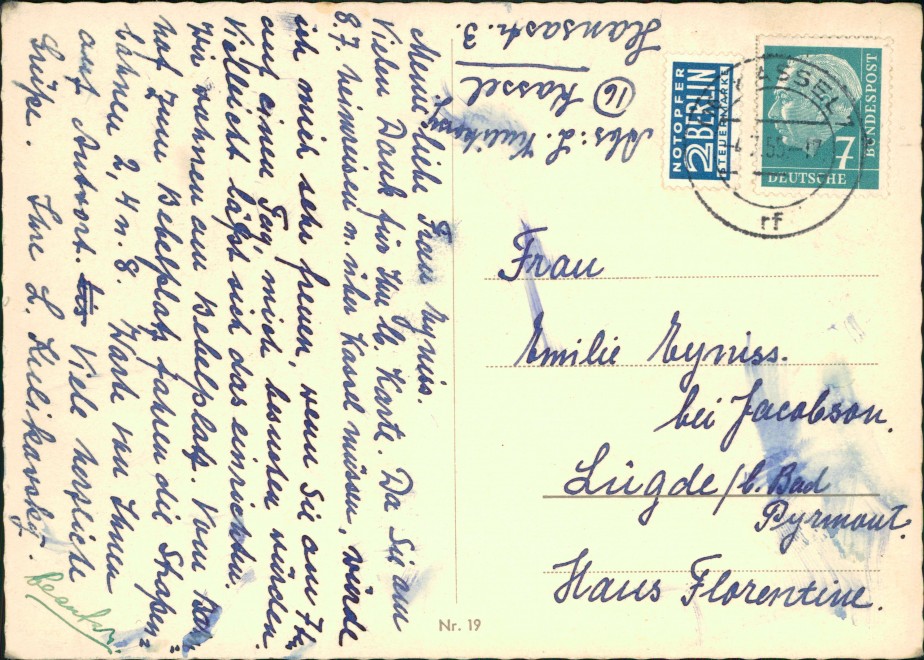 Meine liebe Frau Eyniss.
Vielen Dank für Ihre lb. Karte. Da Sie am
8.7 heimreisen u. über Kassel müssen, würde
ich mich sehr freuen, wenn Sie am
auf einen Tag, mich besuchen würden.
Vielleicht läßt sich das einrichten.
Wir wohnen am Bebelplatz. Vom Bahn-
hof zum Bebelplatz fahren die Straßen=
bahnen 2, 4 u. 8. Warte von Ihnen
auf Antwort. Viele herzliche
Grüße. Ihre L. Kulikovsky.
beantw.
Abs: L. Kulikovsky
(16) Kassel
Hansastr. 3.
NOTOPFER
2 BERLIN
STEUERMARKE
DEUTSCHE
BUNDESPOST
7
KASSEL 7
rf
Frau
Emilie Eyniss.
bei Jacobson.
Lügde/b. Bad
Pyrmont.
Haus Florentine.
Nr. 19